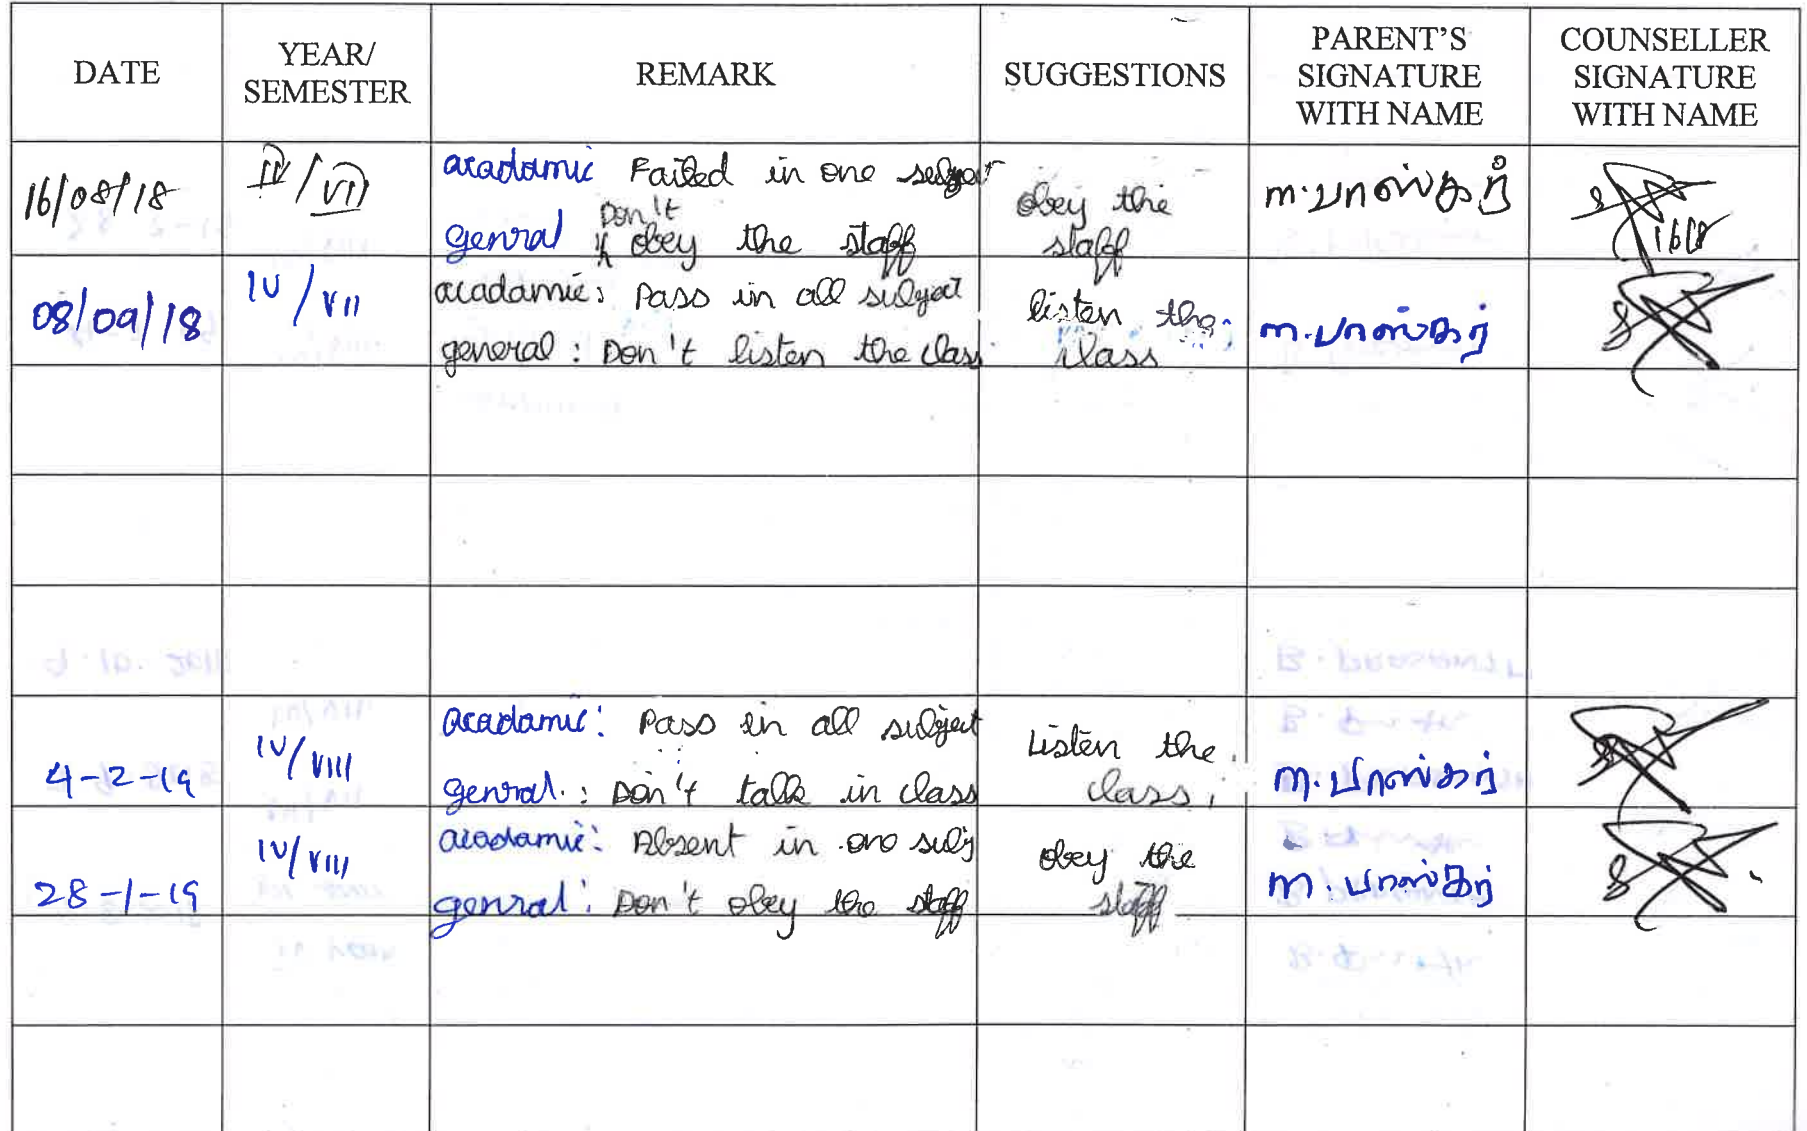 DATE
YEAR/
SEMESTER
REMARK
SUGGESTIONS
PARENT'S
SIGNATURE
WITH NAME
COUNSELLER
SIGNATURE
WITH NAME
16/08/18
IV/VII
acadamic Failed in one subject
Don't
genral obey the staff
obey the
staff
m.பாஸ்கர்
1618
08/09/18
IV/VII
acadamic: Pass in all subject
general: Don't listen the class
listen the
class
m.பாஸ்கர்
4-2-19
IV/VIII
acadamic: Pass in all subject
genral: Don't talk in class
Listen the
class,
m.பாஸ்கர்
28-1-19
IV/VIII
acadamic: Absent in one subj
genral: Don't obey the staff
obey the
staff
m.பாஸ்கர்